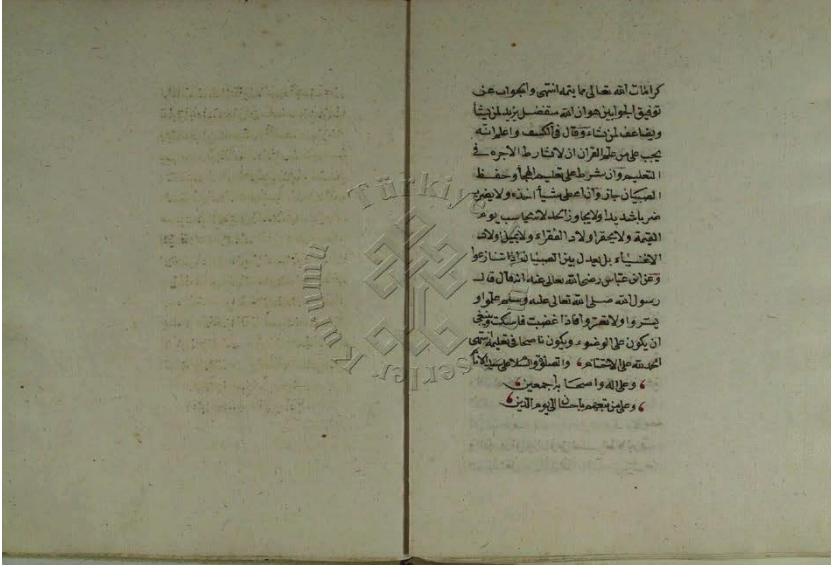 كرامات الله تعالى مما يتمه انتهى والجواب عن
توفيق الجوابين هو ان الله متفضل يزيد لمن يشأ
ويضاعف لمن يشاء وقال فى الكشف واعلم انه
يجب على من علم القران ان لا يشارط الاجره فى
التعليم وان شرط على تعليم الهجأ وحفظ
الصبيان جاز وان اعطى شيأ اخذه ولا يضرب
ضربا شديدا ولا يجاوز الحد لانه يحاسب يوم
القيمة ولا يحقر اولاد الفقراء ولا يميل اولاد
الاغنياء بل يعدل بين الصبيان اذا تنازعوا
وعن ابن عباس رضى الله تعالى عنه انه قال قال
رسول الله صلى الله تعالى عليه وسلم علموا و
يسروا ولا تعسروا فاذا غضبت فاسكت وينبغى
ان يكون على الوضوء ويكون ناصحا فى تعليمه انتهى
الحمد لله على الاختتام والصلوة والسلام على سيد الانام
وعلى اله واصحابه اجمعين
وعلى من تبعهم باحسان الى يوم الدين
Türkiye
Eserler Kurumu